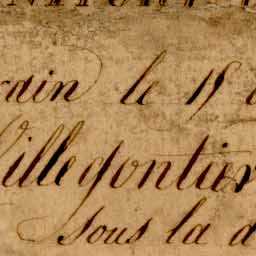 rain le 15
Villegontier
sous la d